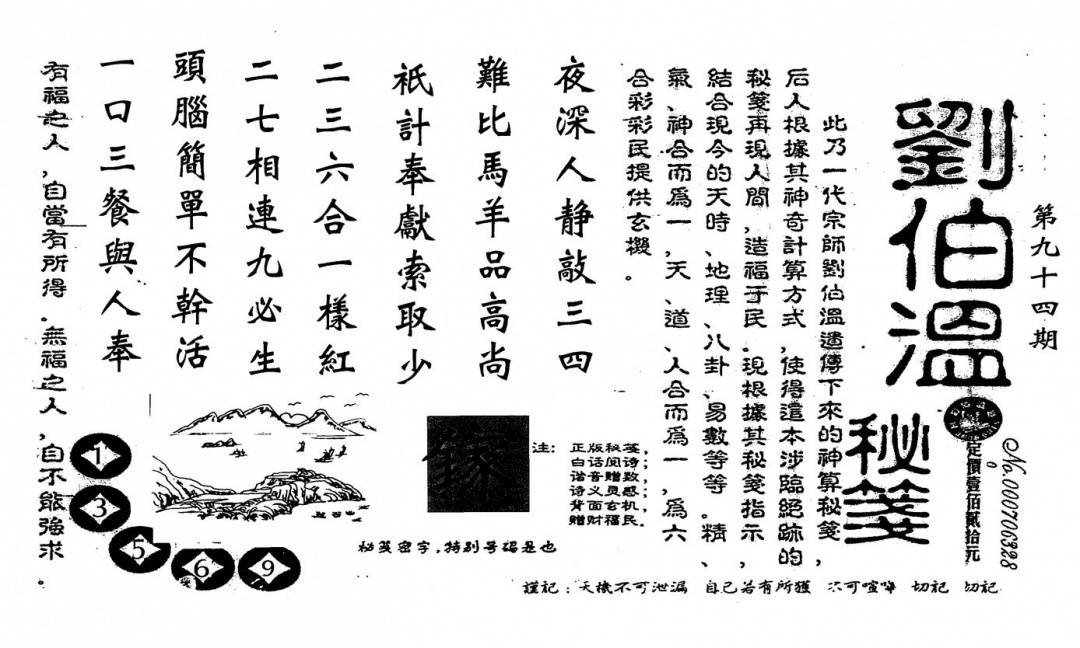 第九十四期
劉伯溫
秘箋
No.000706328
定價壹佰貳拾元
此乃一代宗師劉伯溫遺傳下來的神算秘箋，
后人根據其神奇計算方式，使得這本涉臨絕跡的
秘箋再現人間，造福于民。現根據其秘箋指示、
結合現今的天時、地理、八卦、易數等等。精、
氣、神合而爲一，天、道、人合而爲一，爲六
合彩彩民提供玄機。
夜深人静敲三四
難比馬羊品高尚
祇計奉獻索取少
二三六合一樣紅
二七相連九必生
頭腦簡單不幹活
一口三餐與人奉
有福之人，自當有所得。無福之人，自不能强求。
注：正版秘笺，
白话阅诗；
谐音赠致，
诗义灵感；
背面玄机，
赠财福民。
秘笺密字，特别号码是也
1
3
5
6
9
謹記：天機不可泄漏 自己若有所獲 不可喧嘩 切記 切記